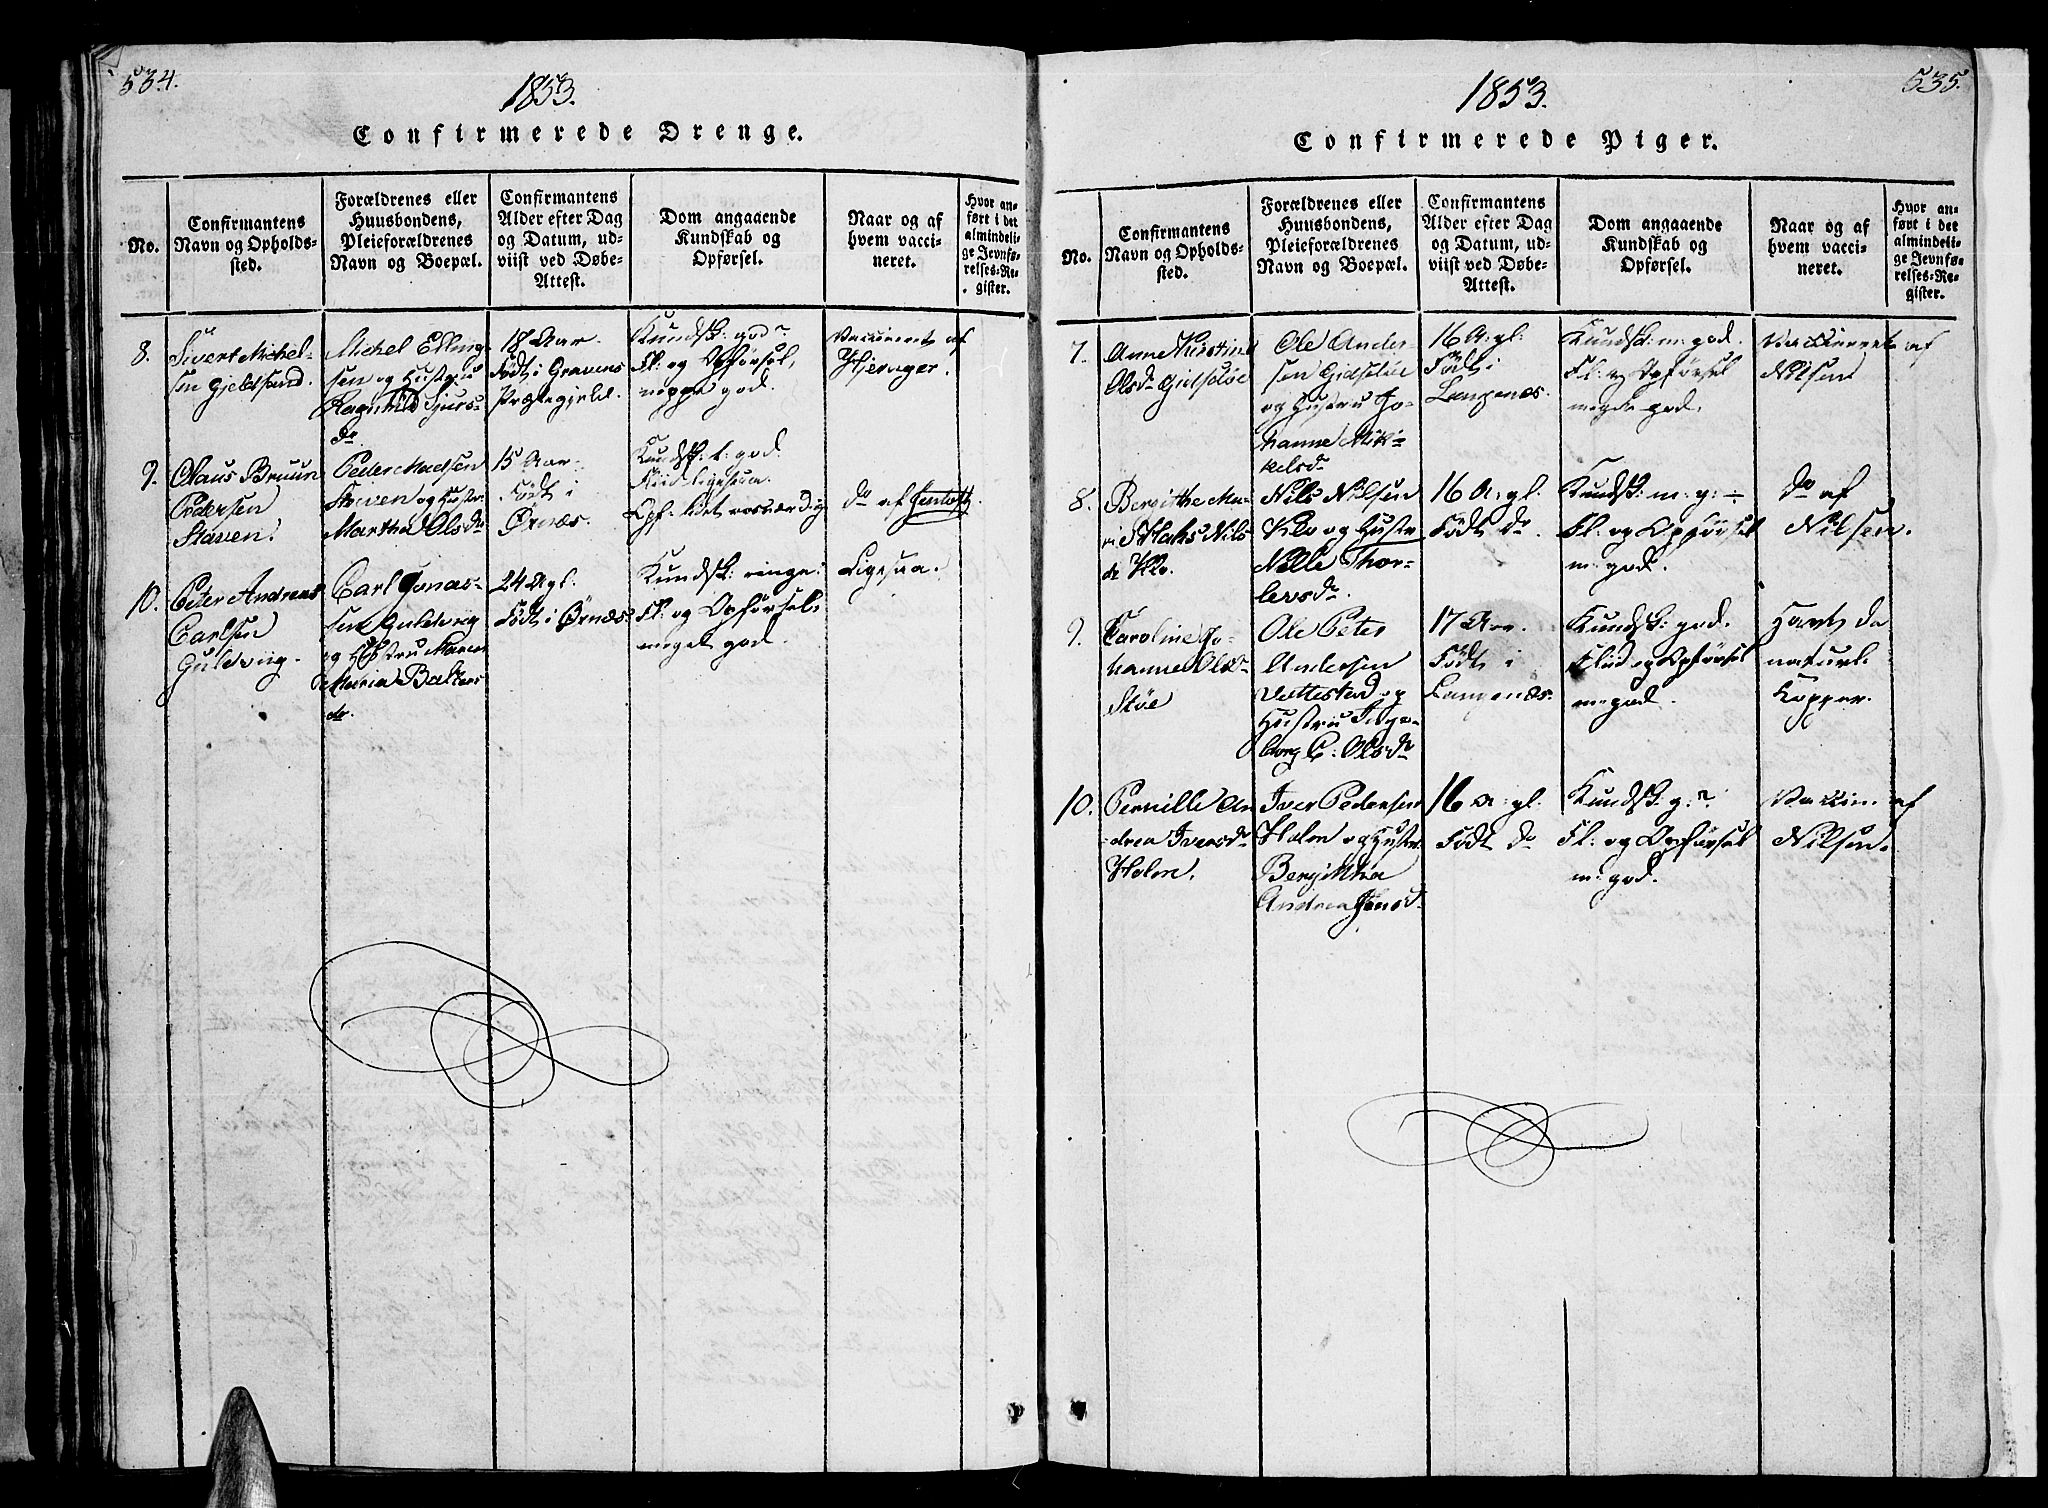 534.
1853.
Confirmerede Drenge.
No.
Confirmantens
Navn og Opholds-
sted.
Forældrenes eller
Huusbondens,
Pleieforældrenes
Navn og Boepæl.
Confirmantens
Alder efter Dag
og Datum, ud-
viist ved Døbe-
Attest.
Dom angaaende
Kundskab og
Opførsel.
Naar og af
hvem vacci-
neret.
Hvor an-
ført i det
almindeli-
ge Jevnfø-
relses-Re-
gister.
8.
Sivert Michel-
sen Gjeldsand.
Michel Elling-
sen og Hustru
Ragnhild Sjurs-
dr
18 Aar.
Født i Gravens
Præstegjeld.
Kundsk: god
Fl: og Opførsel,
god.
Vaccineret af
Hjernger.
9.
Claus Bruun
Pedersen
Staven.
Peder Madsen
Staven og Hustr
Martha Olsdr
15 Aar.
Født i
Ørnæs.
Kundsk: t: god.
Flid ligesaa.
Opf: lidt rosværdig
do af Justoft.
10.
Peter Andreas
Carlsen
Guldviig.
Carl Jonas-
sen Guldvig
og Hustru Maren
Maria Baltzers
dr.
24 A gl.
Født i Ørnæs.
Kundsk: ringe:
Fl: og Opførsel,
meget god
Ligesaa.
535.
1853.
Confirmerede Piger.
No.
Confirmantens
Navn og Opholds-
sted.
Forældrenes eller
Huusbondens,
Pleieforældrenes
Navn og Boepæl.
Confirmantens
Alder efter Dag
og Datum, ud-
viist ved Døbe-
Attest.
Dom angaaende
Kundskab og
Opførsel.
Naar og af
hvem vacci-
neret.
Hvor an-
ført i det
almindeli-
ge Jevnfø-
relses-Re-
gister.
7.
Anne Kirstine
Olsdr Gidseløe
Ole Ander
sen Gidseløe
og Hustru Jo-
hanne Mik-
kelsdr
16 A: gl:
Født i
Langenæs.
Kundsk: m: god.
Fl: og Opførsel
meget god.
Vaccineret af
Nilsen
8.
Bergitthe Ma-
Nils
dr Klo.
Nils Nilsen
Klo og Hustr
Nille Thor-
levsdr.
16 A: gl.
Født do.
Kundsk: m: g: ÷
Fl: og Opførsel
m: god.
do af
Nilsen.
9.
Caroline Jo-
hanne Olsdr
Støe
Ole Peter
Andersen
Vettestad og
Hustru Inge-
borg C: Olsdr
17 Aar.
Født i
Langenæs.
Kundsk: god.
Flid og Opførsel
m: god.
Havt de
naturl.
Kopper.
10.
Pernille An
drea Iversdr
Holm.
Iver Pedersen
Holm og Hustr.
Bergitha
Andrea Jensd.
16 A: gl.
Født do
Kundsk: g:
Fl: og Opførsel
m: god.
Vaccin. af
Nilsen.